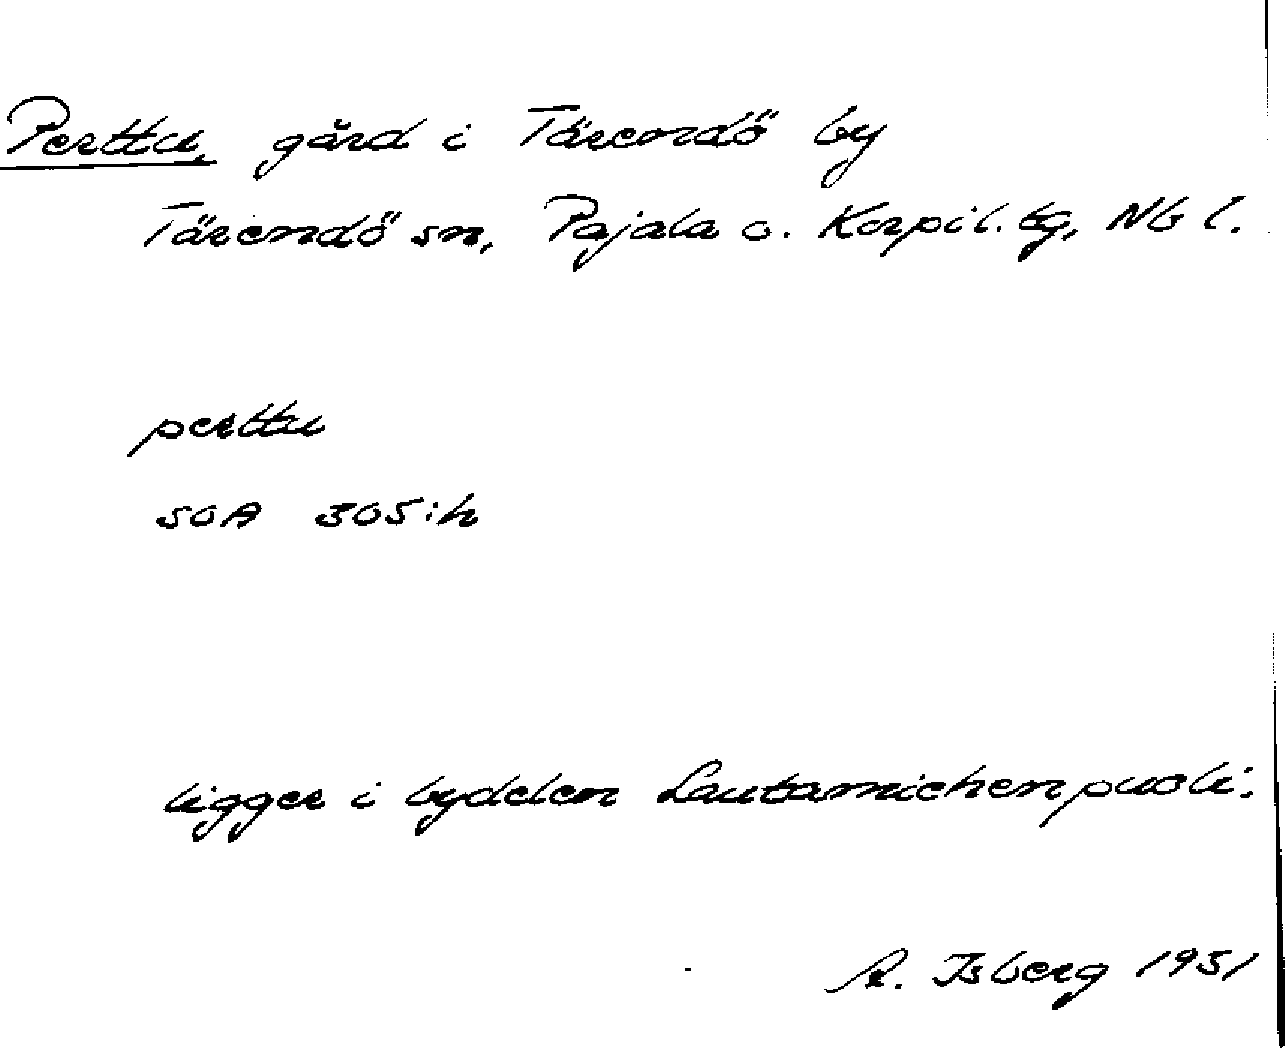 Perttu, gård i Tärendö by
Tärendö sn, Pajala o. Korpil. tg, Nb l.
perttu
SOA 305:h
ligger i bydelen Lautamichenpuoli.
A. Isberg 1951